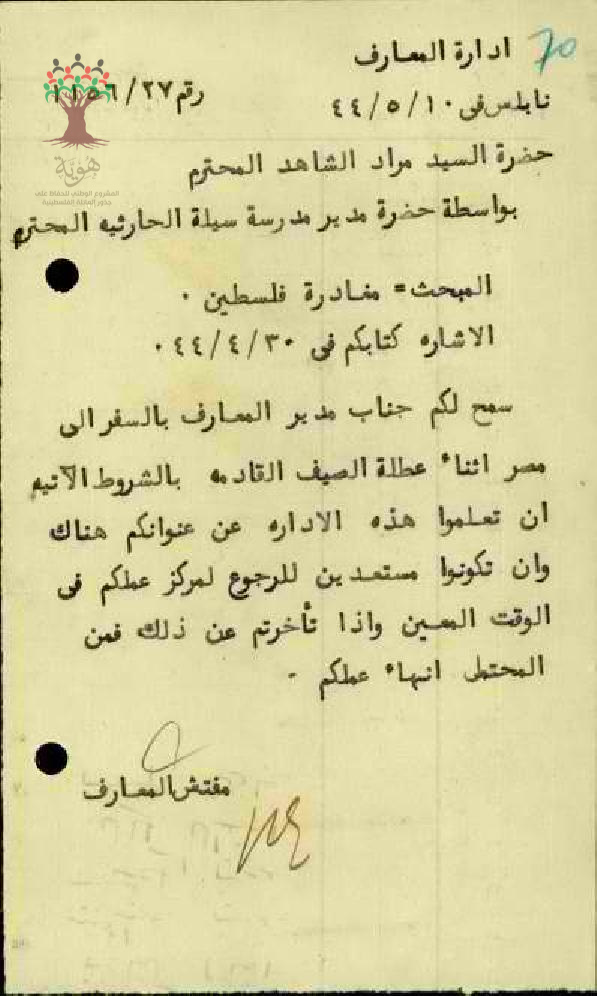 ٦٥
ادارة المعارف
نابلس فى ١٠/٥/٤٤
رقم ٢٧/١١٥٦
هُويَّة
المشروع الوطني للحفاظ على
جذور العائلة الفلسطينية
حضرة السيد مراد الشاهد المحترم
بواسطة حضرة مدير مدرسة سيلة الحارثيه المحترم
المبحث = مغادرة فلسطين .
الاشاره كتابكم فى ٣٠/٤/٤٤ .
سمح لكم جناب مدير المعارف بالسفر الى
مصر اثناء عطلة الصيف القادمه بالشروط الآتيه
ان تعلموا هذه الاداره عن عنوانكم هناك
وان تكونوا مستعدين للرجوع لمركز عملكم فى
الوقت المعين واذا تأخرتم عن ذلك فمن
المحتمل انهاء عملكم .
مفتش المعارف